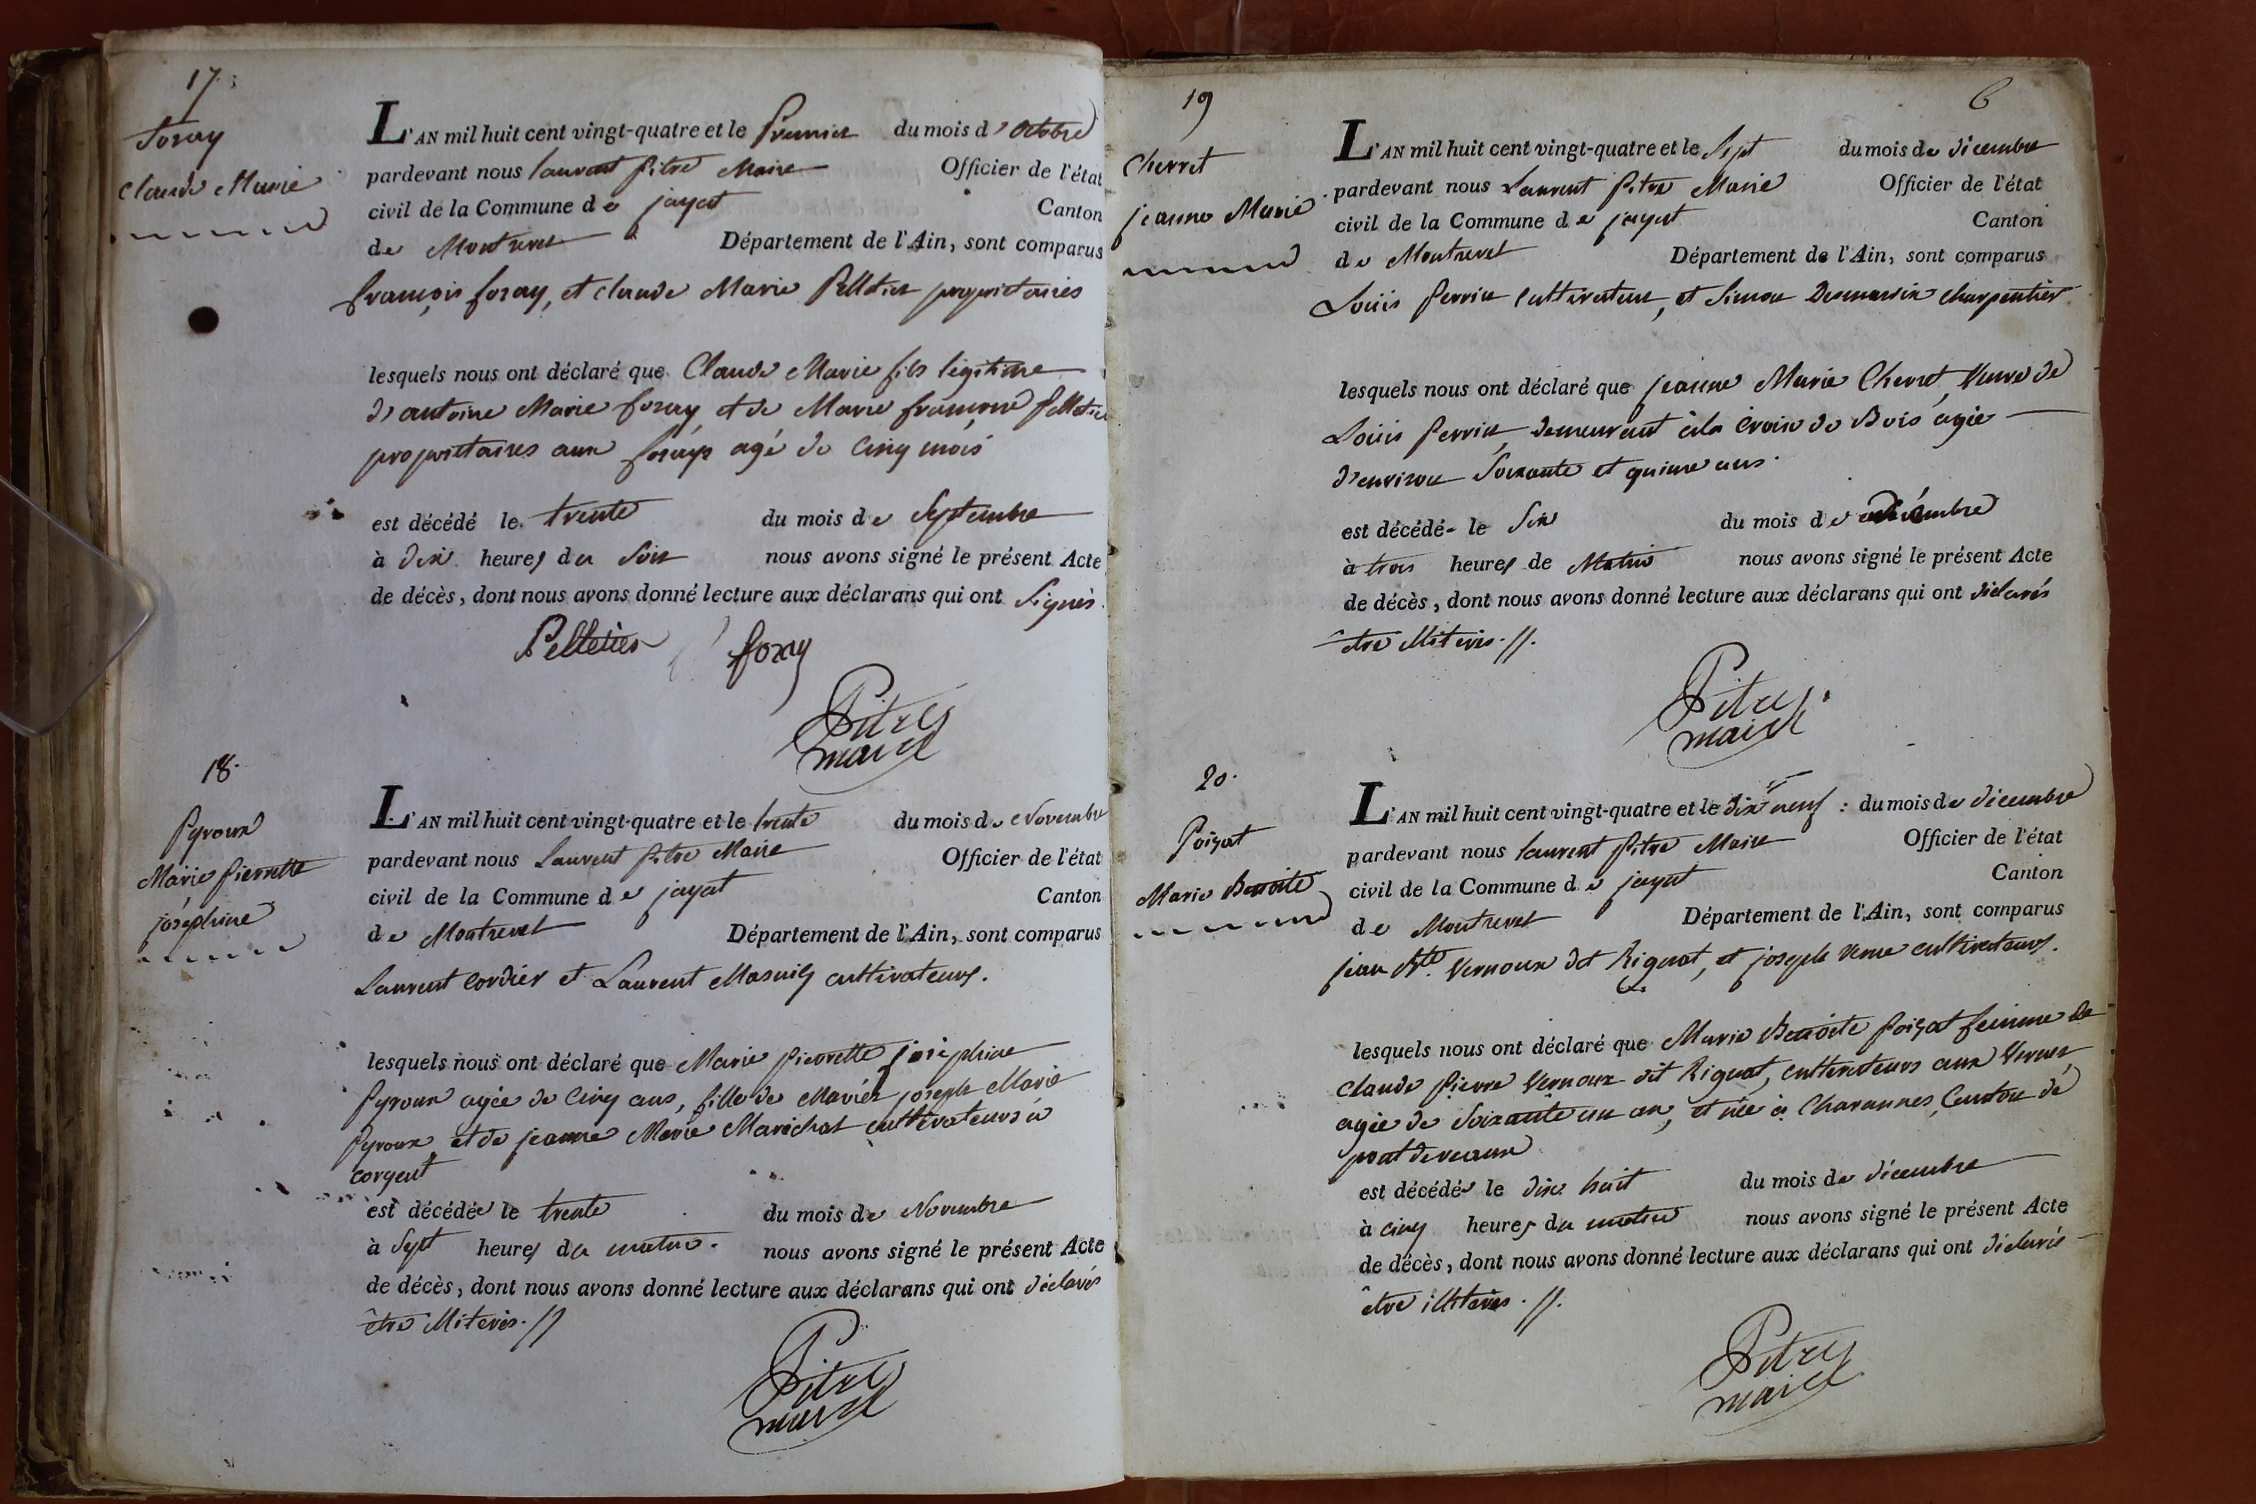 17.
foray
Claude Marie
L'AN mil huit cent vingt-quatre et le premier du mois d'octobre
pardevant nous laurent pitre Maire Officier de l'état
civil de la Commune de jayat Canton
de Montrevel Département de l'Ain, sont comparus
françois foray, et claude Marie Pelletier propriétaires
lesquels nous ont déclaré que Claude Marie fils légitime
d'antoine Marie foray et de Marie françoise Pelletier
propriétaires aux forays agé de cinq mois
est décédé le trente du mois de Septembre
à dix heures du soir nous avons signé le présent Acte
de décès, dont nous avons donné lecture aux déclarans qui ont signés
Pelletier foray
Pitre
maire
18.
Pyroux
Marie pierrette
joséphine
L'AN mil huit cent vingt-quatre et le trente du mois de Novembre
pardevant nous Laurent pitre Maire Officier de l'état
civil de la Commune de jayat Canton
de Montrevel Département de l'Ain, sont comparus
Laurent Cordier et Laurent Masuily cultivateurs.
lesquels nous ont déclaré que Marie pierrette joséphine
Pyroux agée de cinq ans, fille de Marie joseph Marie
Pyroux et de jeanne Marie Maréchal cultivateurs à
corgent
est décédée le trente du mois de Novembre
à sept heures du matin. nous avons signé le présent Acte
de décès, dont nous avons donné lecture aux déclarans qui ont déclarés
être illiterés. //
Pitre
maire
19
6
Cherret
jeanne Marie
L'AN mil huit cent vingt-quatre et le sept du mois de décembre
pardevant nous Laurent Pitre Maire Officier de l'état
civil de la Commune de jayat Canton
de Montrevel Département de l'Ain, sont comparus
Louis perrin cultivateur, et Simon Desmaris charpentier
lesquels nous ont déclaré que jeanne Marie Cherret, Veuve de
Louis perrin, demeurant à la croix de Bois agée
d'environ soixante et quinze ans.
est décédée le six du mois de décembre
à trois heures de Matin nous avons signé le présent Acte
de décès, dont nous avons donné lecture aux déclarans qui ont déclarés
être illiterés. //.
Pitre
maire
20.
Poizat
Marie Benoite
L'AN mil huit cent vingt-quatre et le dix neuf : du mois de décembre
pardevant nous laurent pitre Maire Officier de l'état
civil de la Commune de jayat Canton
de Montrevel Département de l'Ain, sont comparus
jean Bte. Vernoux dit Riguat, et joseph Verne cultivateurs.
lesquels nous ont déclaré que Marie Benoite poizat femme de
claude pierre Vernoux dit Riguat, cultivateurs aux Vernes,
agée de soixante un an, et née à Chavannes, Canton de
pont devaux
est décédée le dix huit du mois de décembre
à cinq heures du matin nous avons signé le présent Acte
de décès, dont nous avons donné lecture aux déclarans qui ont déclarés
être illiterés. //.
Pitre
maire